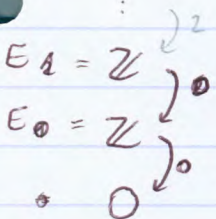 ⋮
2
E₁ = ℤ
0
E₀ = ℤ
0
0